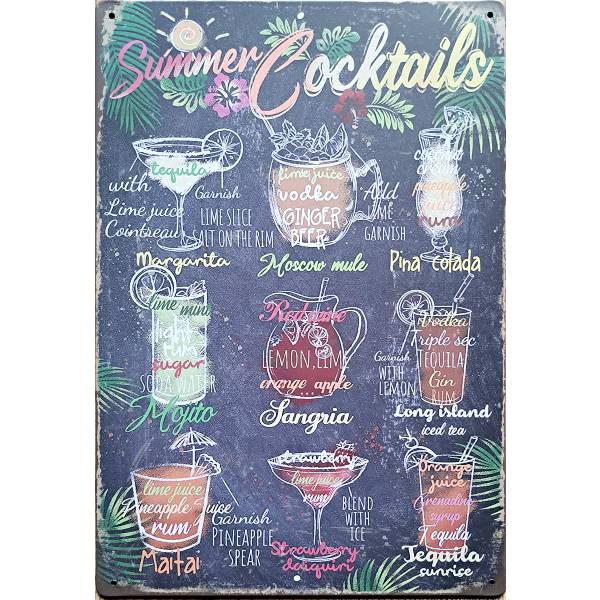 Summer Cocktails
tequila
with
Lime juice
Cointreau
Garnish
LIME SLICE
SALT ON THE RIM
Margarita
lime juice
vodka
GINGER
BEER
Add
LIME
GARNISH
Moscow mule
coconut
cream
pineapple
juice
rum
Pina Colada
lime mint
light
rum
sugar
SODA WATER
Mojito
Red wine
LEMON, LIME
orange apple
Sangria
Vodka
Triple sec
TEQUILA
Gin
RUM
Garnish
WITH
LEMON
Long island
iced tea
lime juice
Pineapple Juice
rum
Garnish
PINEAPPLE
-SPEAR
Maitai
strawberry
lime juice
rum
BLEND
WITH
ICE
Strawberry
daiquiri
Orange
juice
Grenadine
syrup
Tequila
Tequila
sunrise